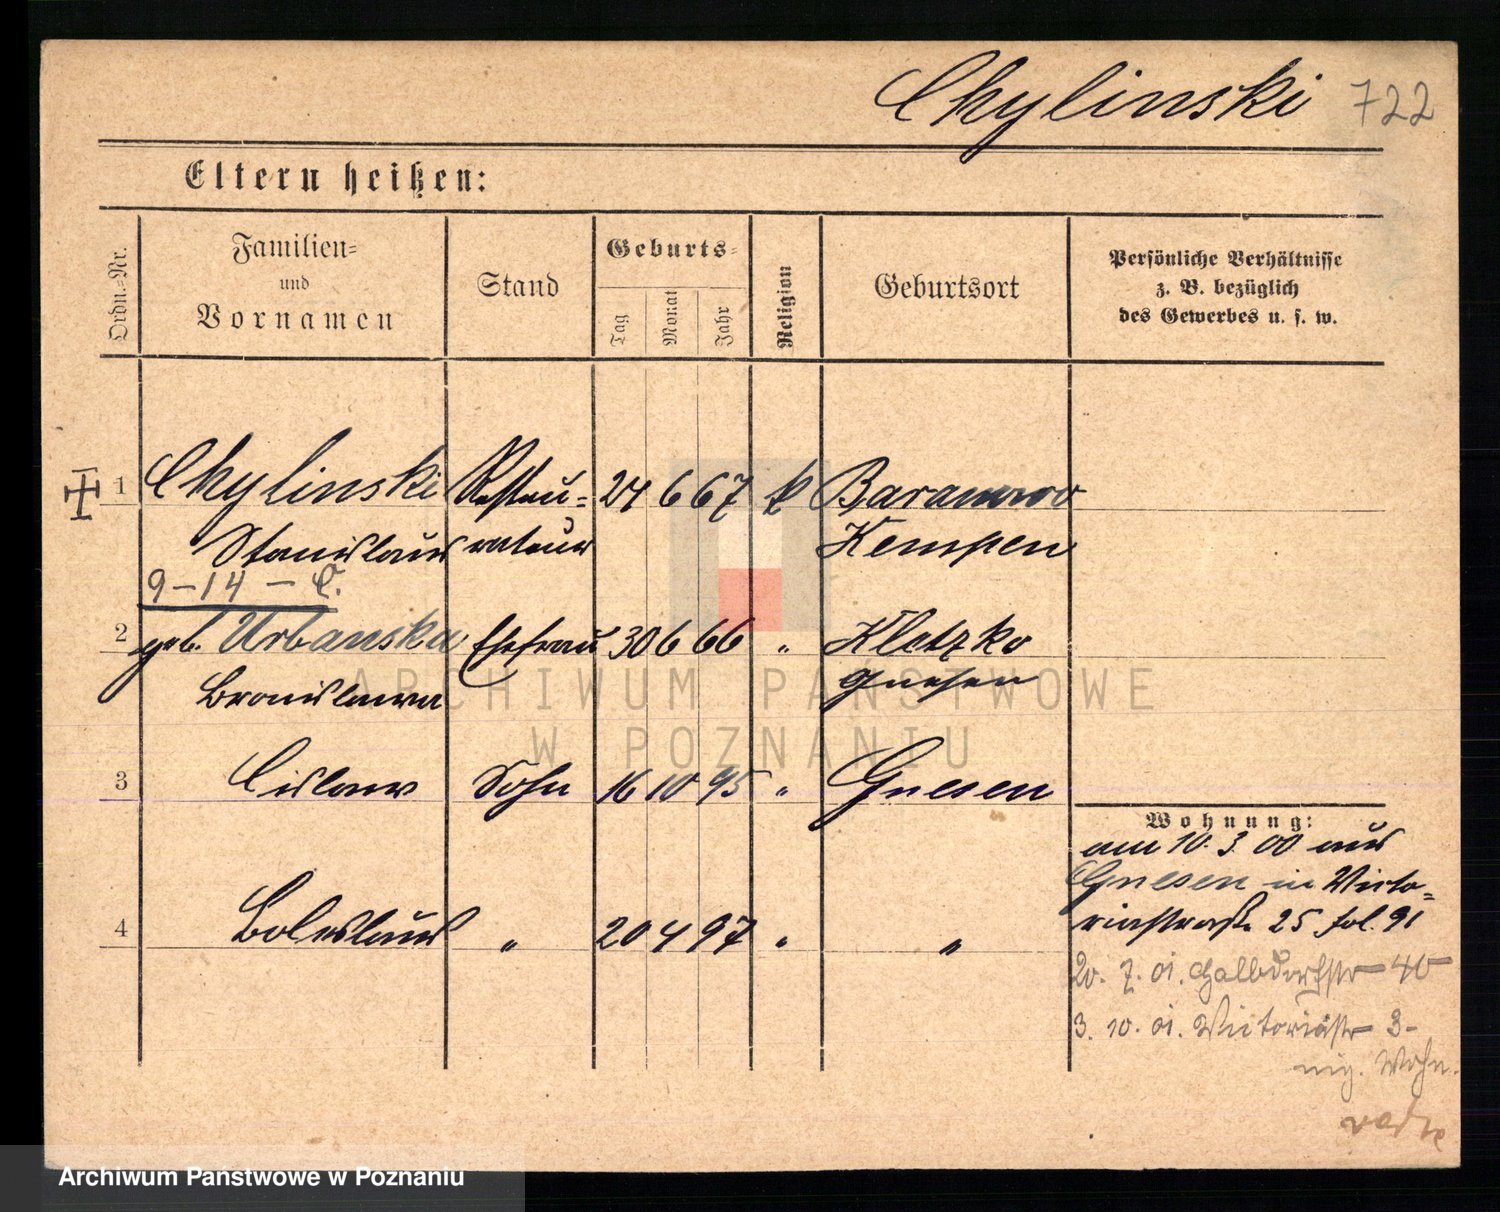 Chylinski 722
Eltern heißen:
Ordn.-Nr.
Familien-
und
Vornamen
Stand
Geburts-
Tag
Monat
Jahr
Religion
Geburtsort
Persönliche Verhältnisse
z. B. bezüglich
des Gewerbes u. s. w.
1 Chylinski Restau- 24 6 67 k Baranowo
Stanislaus rateur Kempen
9-14-C.
2 geb. Urbanska Ehefrau 30 6 66 " Kletzko
Bronislawa Gnesen
ARCHIWUM PAŃSTWOWE
W POZNANIU
3 Cislaus Sohn 16 10 95 " Gnesen
Wohnung:
am 10. 3. 00 aus
Gnesen in Victo=
riastraße 25 fol. 91
4 Boleslaus " 20 4 97 " "
20. 7. 01. Halbdorfstr 40
3. 10. 01. Victoriastr 3-
Wohn.
Archiwum Państwowe w Poznaniu